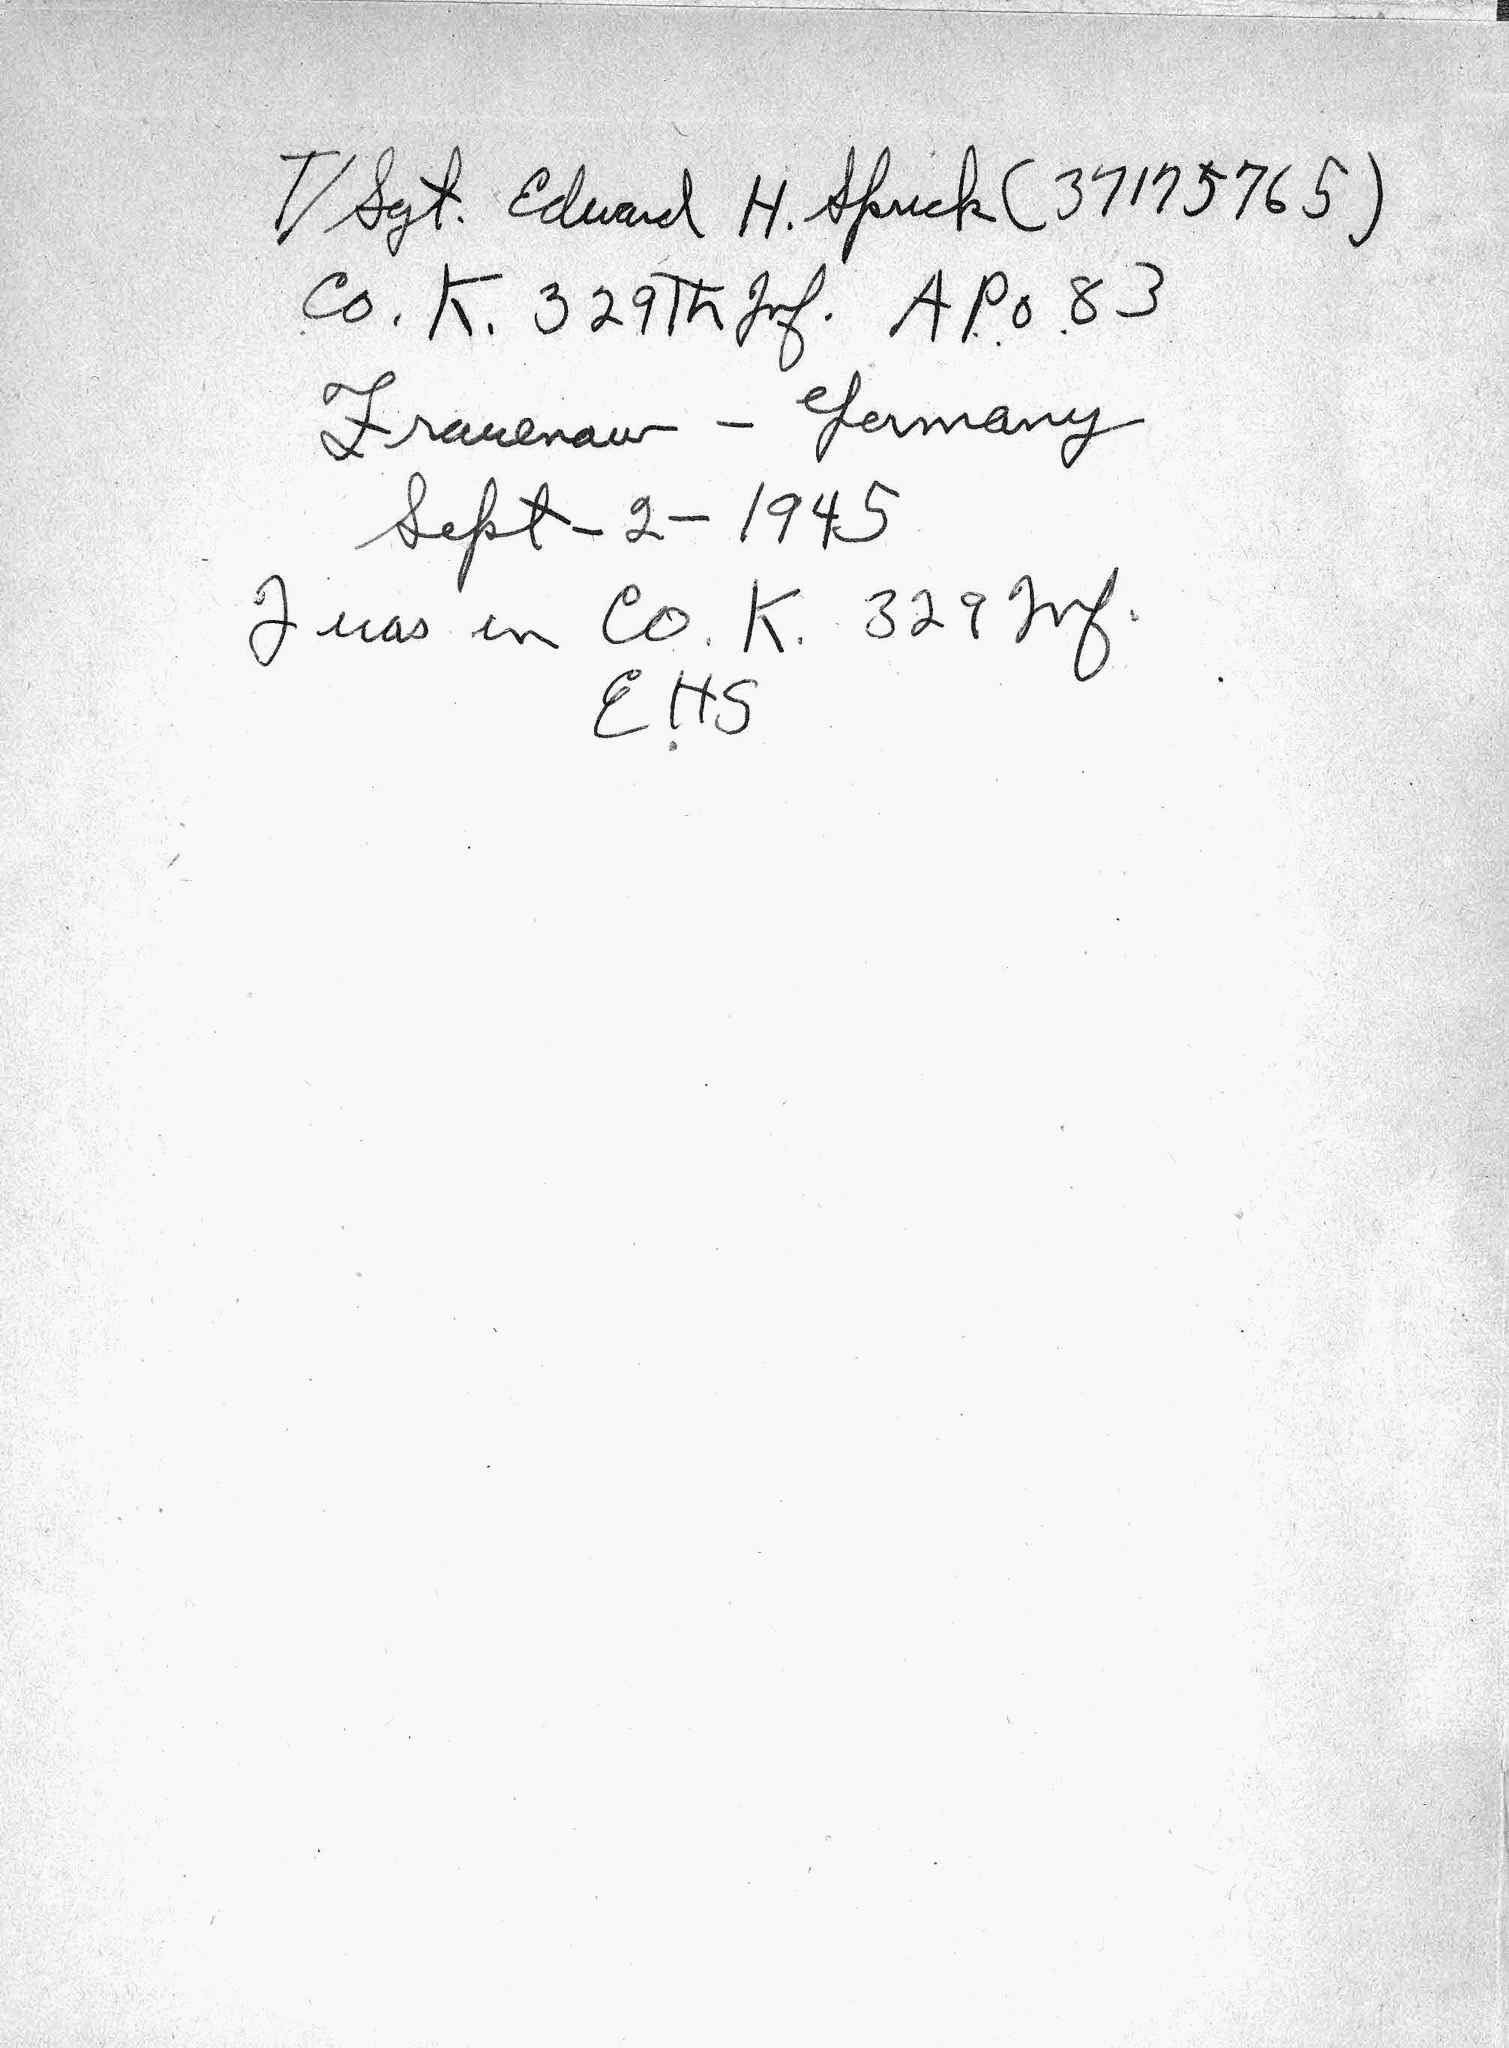 T/Sgt. Edward H. Spruck (37175765)
Co. K. 329Th Inf. A.P.O. 83
Frauenau - Germany
Sept - 2 - 1945
I was in Co. K. 329 Inf.
E.H.S